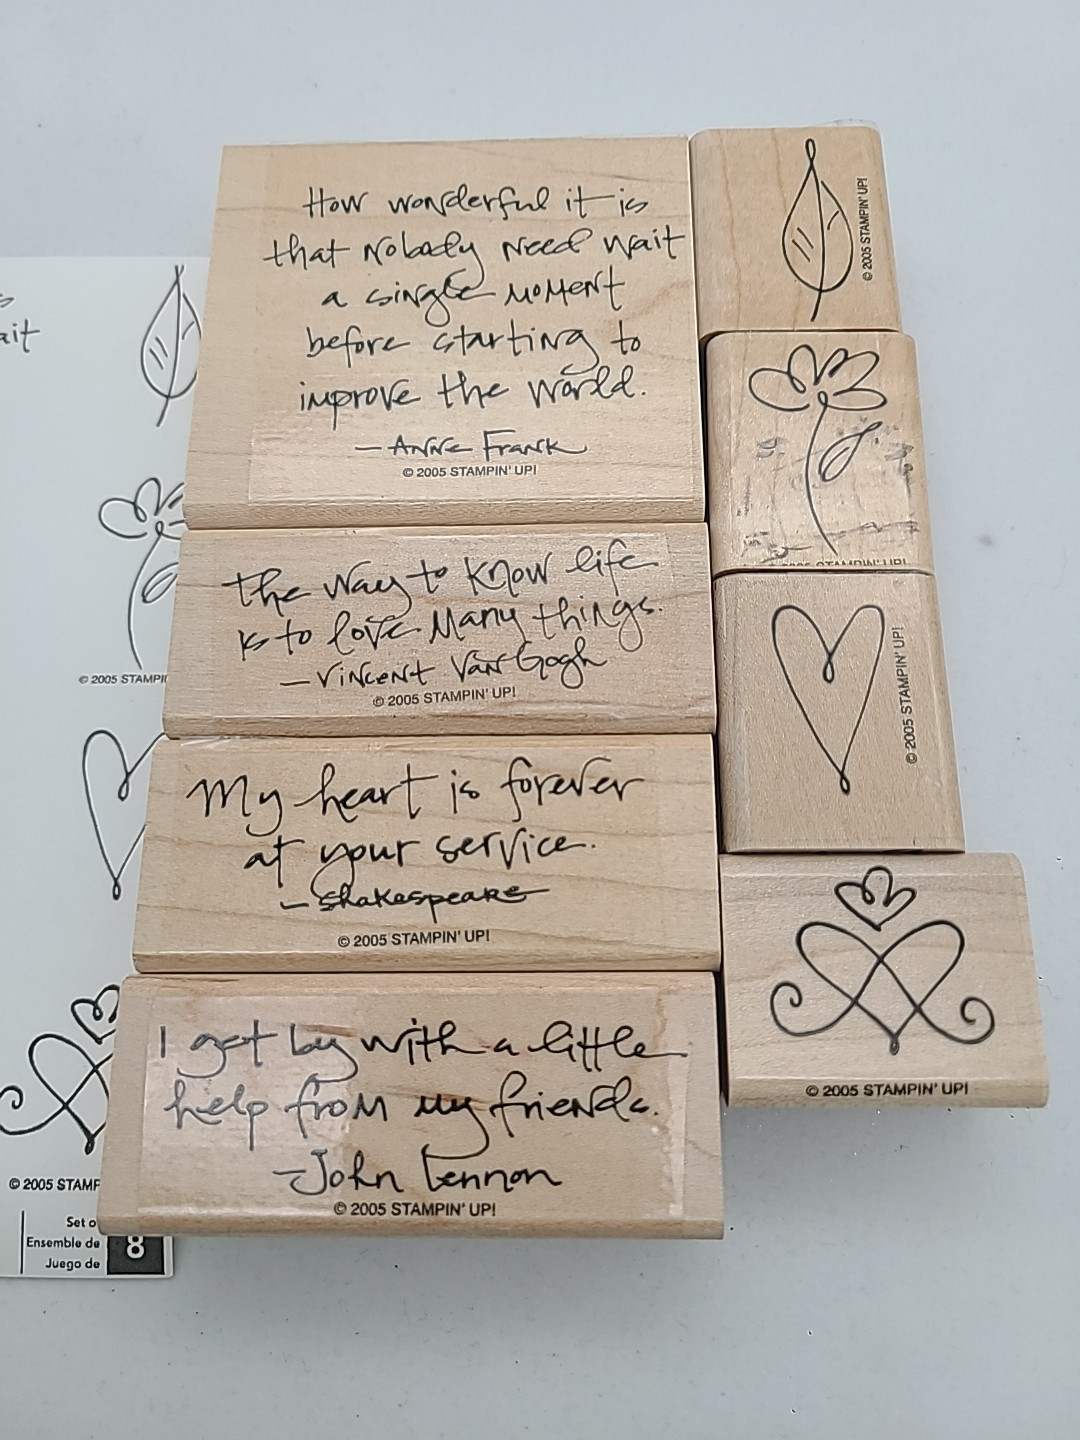 How wonderful it is
that Nobody Need wait
a single moment
before starting to
improve the world.
— Anne Frank
© 2005 STAMPIN' UP!
the way to know life
is to love many things.
— Vincent Van Gogh
© 2005 STAMPIN' UP!
My heart is forever
at your service.
— Shakespeare
© 2005 STAMPIN' UP!
I get by with a little
help from my friends.
— John Lennon
© 2005 STAMPIN' UP!
© 2005 STAMPIN' UP!
© 2005 STAMPIN' UP!
© 2005 STAMPIN' UP!
© 2005 STAMPIN' UP!
ait
© 2005 STAMPI
© 2005 STAMP
Set o
Ensemble de
Juego de
8